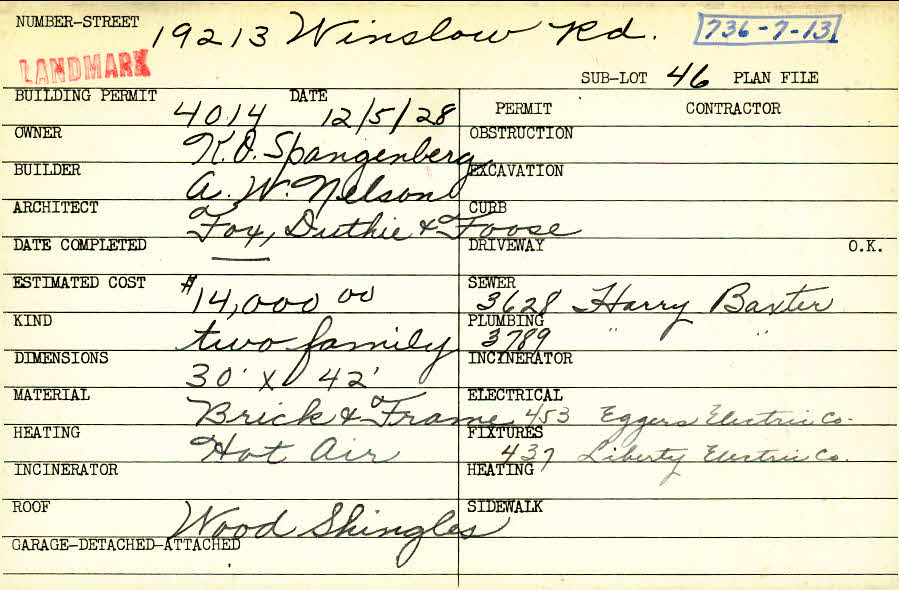 NUMBER-STREET 19213 Winslow Rd. 736-7-13
LANDMARK SUB-LOT 46 PLAN FILE
BUILDING PERMIT 4014 DATE 12/5/28 PERMIT CONTRACTOR
OWNER K.O. Spangenberg OBSTRUCTION
BUILDER A. W. Nelson EXCAVATION
ARCHITECT Fox, Duthie & Foose CURB
DATE COMPLETED — DRIVEWAY O.K.
ESTIMATED COST $14,000 00 SEWER 3628 Harry Baxter
KIND two family PLUMBING 3789 " "
DIMENSIONS 30' x 42' INCINERATOR
MATERIAL Brick & Frame ELECTRICAL 453 Eggers Electric Co.
HEATING Hot Air FIXTURES 437 Liberty Electric Co.
INCINERATOR HEATING
ROOF Wood Shingles SIDEWALK
GARAGE-DETACHED-ATTACHED